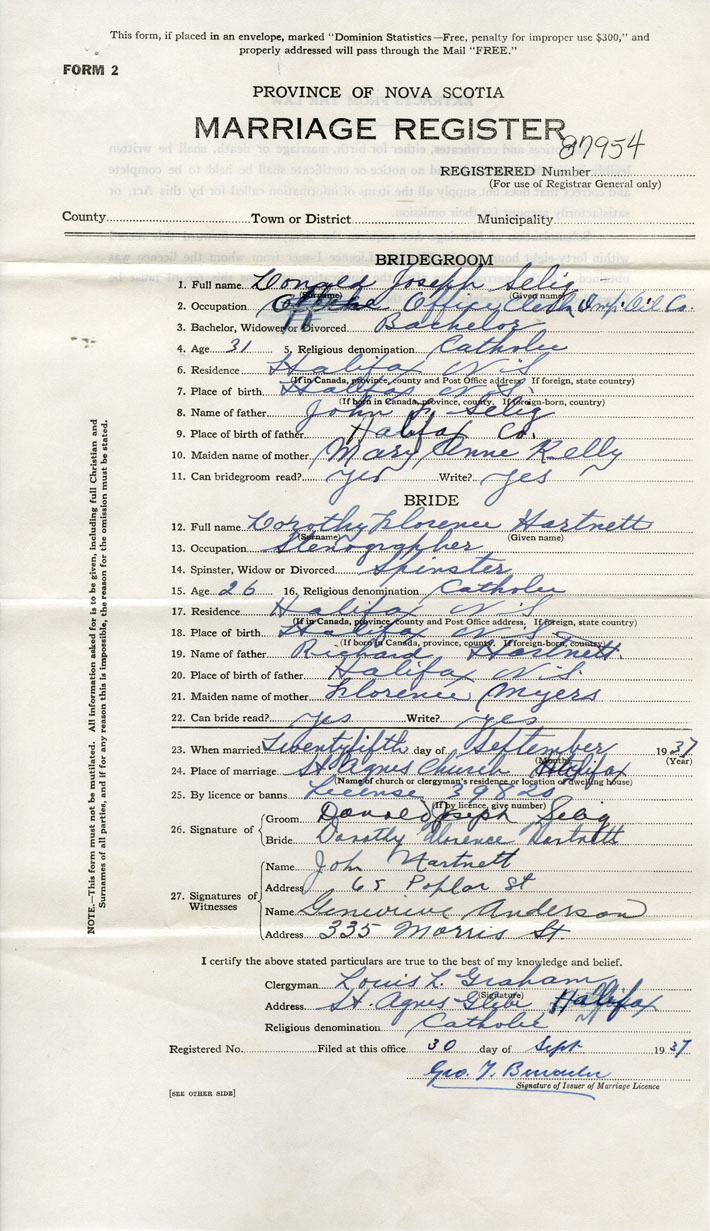 This form, if placed in an envelope, marked "Dominion Statistics—Free, penalty for improper use $300," and
properly addressed will pass through the Mail "FREE."
FORM 2
PROVINCE OF NOVA SCOTIA
MARRIAGE REGISTER
87954
REGISTERED Number
(For use of Registrar General only)
County Town or District Municipality
BRIDEGROOM
1. Full name Donald Joseph Selig
(Surname) (Given name)
2. Occupation Office Clerk Imp. Oil Co.
3. Bachelor, Widower or Divorced Bachelor
4. Age 31 5. Religious denomination Catholic
6. Residence Halifax N.S.
(If in Canada, province, county and Post Office address. If foreign, state country)
7. Place of birth Halifax N.S.
(If born in Canada, province, county. If foreign-born, country)
8. Name of father John F. Selig
9. Place of birth of father Halifax Co.
10. Maiden name of mother Mary Anne Kelly
11. Can bridegroom read? Yes Write? Yes
BRIDE
12. Full name Dorothy Florence Hartnett
(Surname) (Given name)
13. Occupation Stenographer
14. Spinster, Widow or Divorced Spinster
15. Age 26 16. Religious denomination Catholic
17. Residence Halifax N.S.
(If in Canada, province, county and Post Office address. If foreign, state country)
18. Place of birth Halifax N.S.
(If born in Canada, province, county. If foreign-born, country)
19. Name of father Richard Hartnett.
20. Place of birth of father Halifax N.S.
21. Maiden name of mother Florence Myers
22. Can bride read? Yes Write? Yes
23. When married Twentyfifth day of September 1937
(Month) (Year)
24. Place of marriage St Agnes Church Halifax
(Name of church or clergyman's residence or location of dwelling house)
25. By licence or banns License 39820
(If by licence, give number)
26. Signature of
Groom Donald Joseph Selig
Bride Dorothy Florence Hartnett
27. Signatures of Witnesses
Name John Hartnett
Address 65 Poplar St
Name Genevieve Anderson
Address 335 Morris St.
I certify the above stated particulars are true to the best of my knowledge and belief.
Clergyman Louis L. Graham
(Signature)
Address St. Agnes Glebe Halifax
Religious denomination Catholic
Registered No. Filed at this office 30 day of Sept 1937
Geo. T.
Signature of Issuer of Marriage Licence
[SEE OTHER SIDE]
NOTE.—This form must not be mutilated. All information asked for is to be given, including full Christian and
Surnames of all parties, and if for any reason this is impossible, the reason for the omission must be stated.